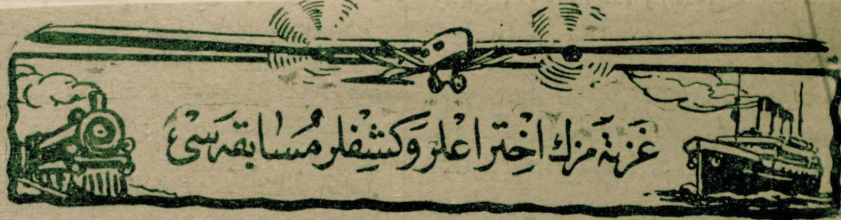 غَزتَه مزك اِخْتراعلر وَ كشِفلر مُسابقه سیْ